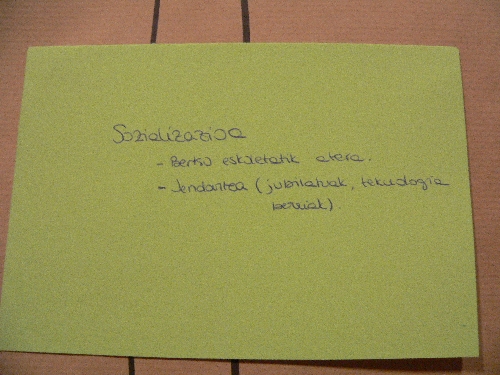 Sozializazioa
- Bertso eskoletatik atera.
- Jendartea (jubilatuak, teknologia
berriak).